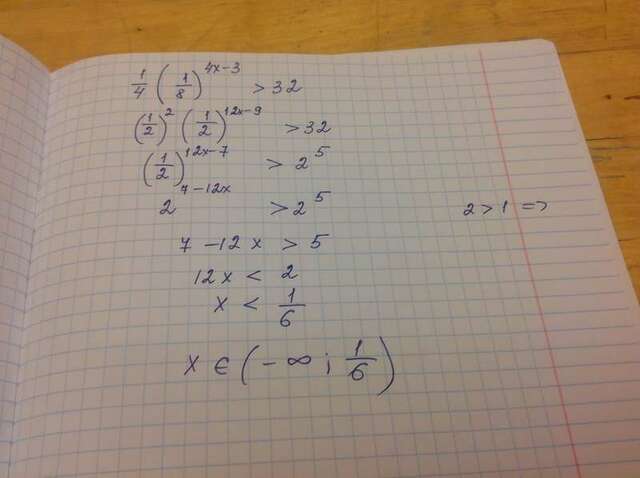 1/4 (1/8)^(4x-3) > 32
(1/2)^2 (1/2)^(12x-9) > 32
(1/2)^(12x-7) > 2^5
2^(7-12x) > 2^5 2 > 1 =>
7 - 12x > 5
12x < 2
x < 1/6
x ∈ (-∞ ; 1/6)